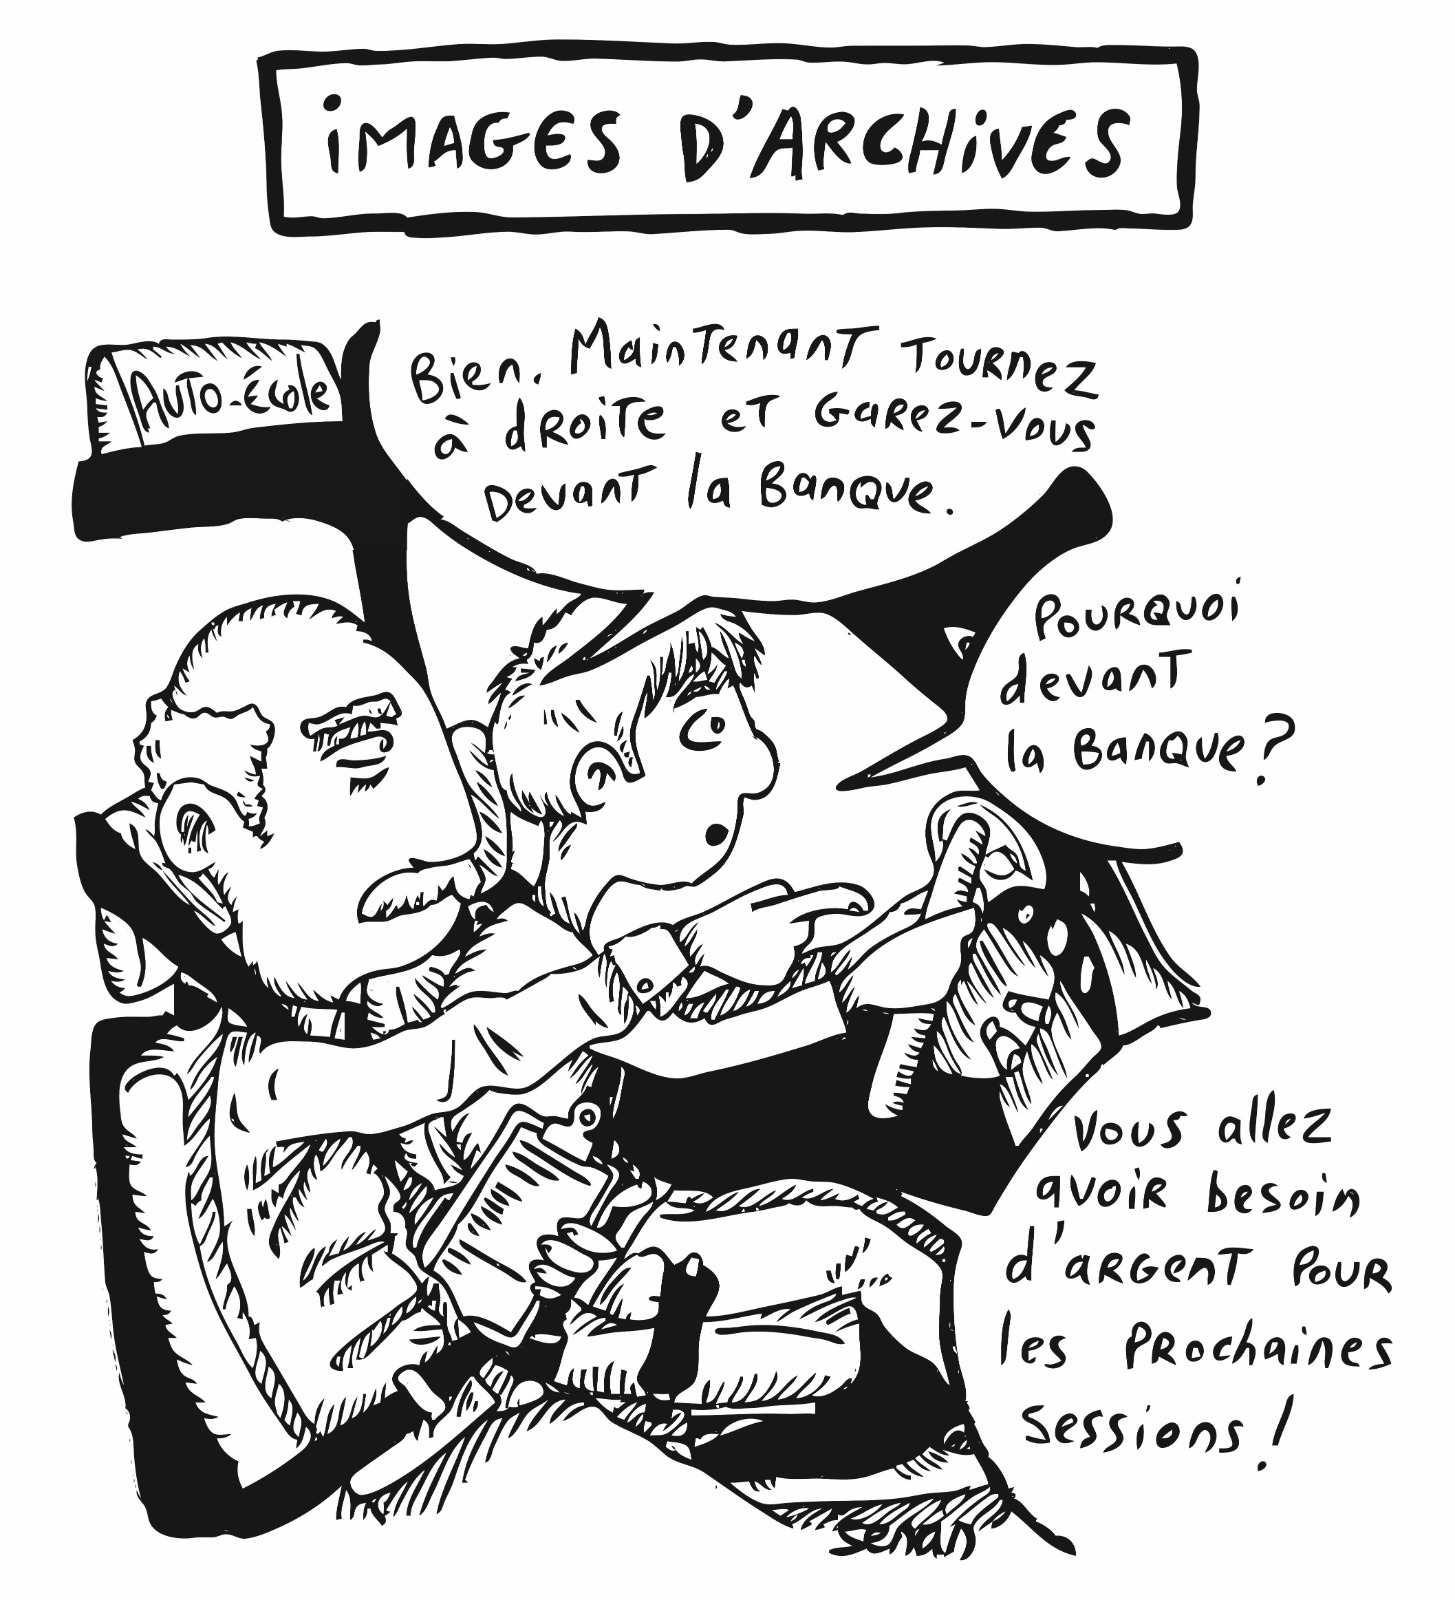 iMAGES D'ARCHiVES
AUTO-ÉCole
Bien. Maintenant tournez
à droite et garez-vous
devant la banque.
Pourquoi
devant
la banque?
Vous allez
avoir besoin
d'argent pour
les prochaines
sessions!
Senan